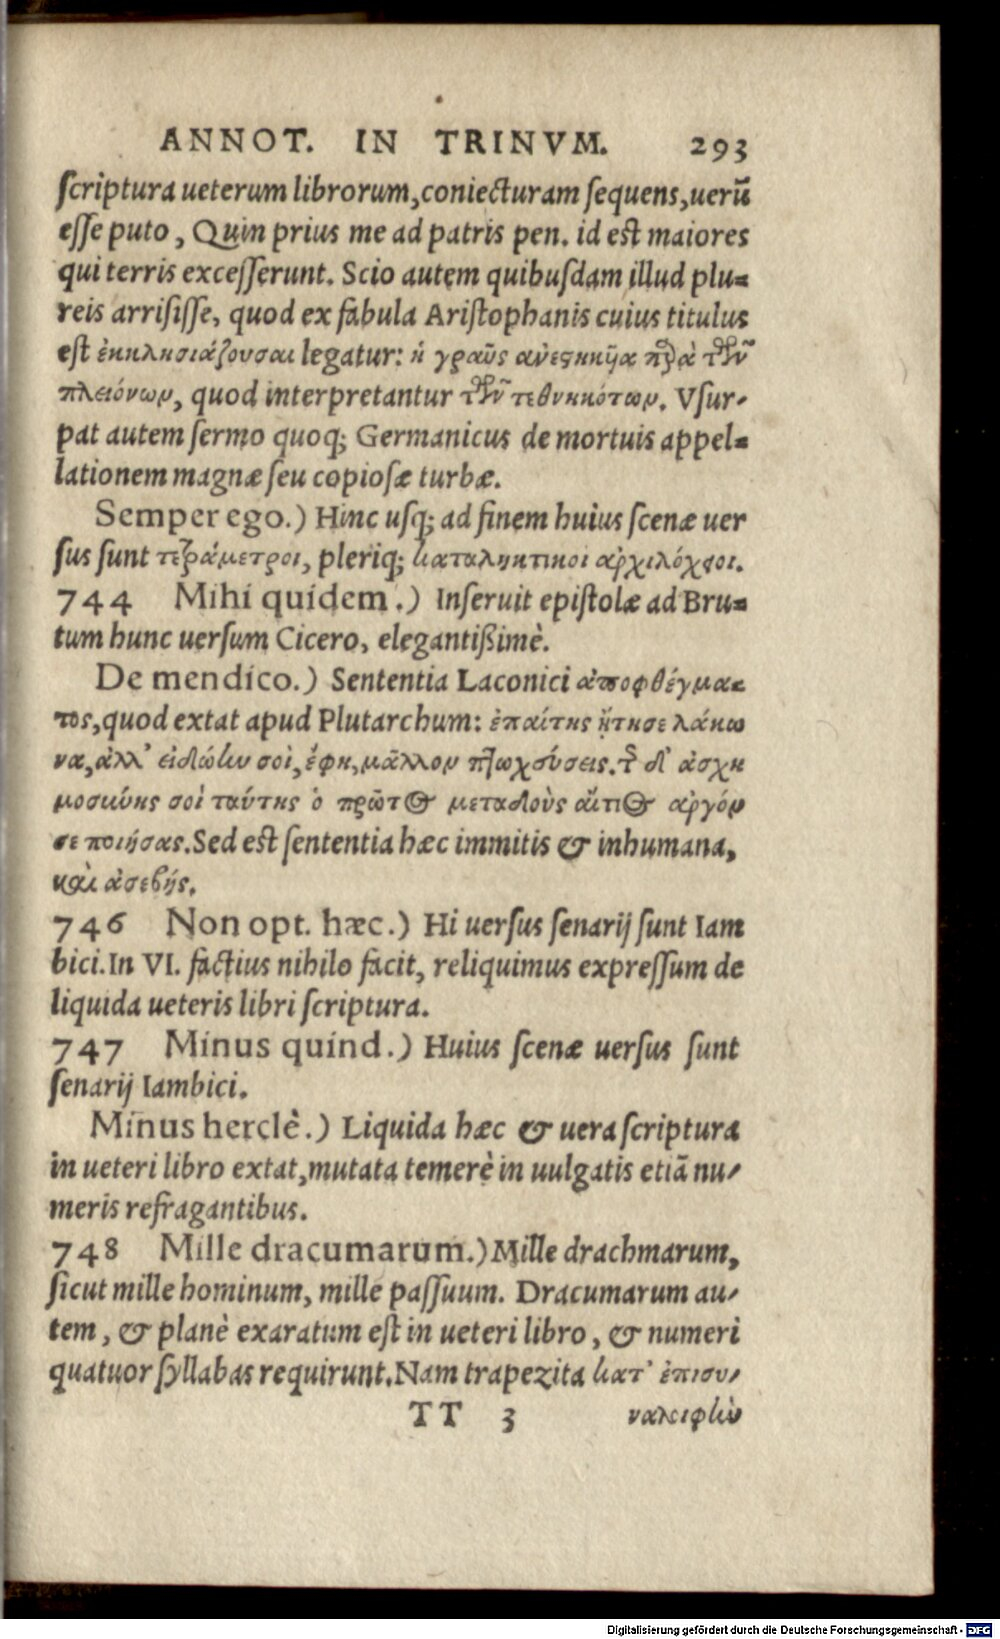 ANNOT. IN TRINVM. 293
scriptura ueterum librorum, coniecturam sequens, uerū
esse puto, Quin prius me ad patris pen. id est maiores
qui terris excesserunt. Scio autem quibusdam illud plu=
reis arrisisse, quod ex fabula Aristophanis cuius titulus
est ἐκκλησιάζουσαι legatur: ἡ γραῦς ἀνεστηκῦα παρὰ τῶν
πλειόνων, quod interpretantur τῶν τεθνηκότων. Vsur-
pat autem sermo quoq; Germanicus de mortuis appel=
lationem magnæ seu copiosæ turbæ.
Semper ego.) Hinc usq; ad finem huius scenæ uer
sus sunt τετράμετροι, pleriq; καταληκτικοὶ ἀρχιλόχειοι.
744 Mihi quidem.) Inseruit epistolæ ad Bru=
tum hunc uersum Cicero, elegantißimè.
De mendico.) Sententia Laconici ἀποφθέγμα-
τος, quod extat apud Plutarchum: ἐπαίτης ᾔτησε λάκω
να, ἀλλ' εἰ δώην σοὶ, ἔφη, μᾶλλον πτωχεύσεις. τῆς δ' ἀσχη
μοσύνης σοὶ ταύτης ὁ πρῶτος μεταδοὺς αἴτιος ἀργόν
σε ποιήσας. Sed est sententia hæc immitis & inhumana,
καὶ ἀσεβής.
746 Non opt. hæc.) Hi uersus senarij sunt Iam
bici. In VI. factius nihilo facit, reliquimus expressum de
liquida ueteris libri scriptura.
747 Minus quind.) Huius scenæ uersus sunt
senarij Iambici.
Minus herclè.) Liquida hæc & uera scriptura
in ueteri libro extat, mutata temerè in uulgatis etiā nu-
meris refragantibus.
748 Mille dracumarum.) Mille drachmarum,
sicut mille hominum, mille passuum. Dracumarum au-
tem, & planè exaratum est in ueteri libro, & numeri
quatuor syllabas requirunt. Nam trapezita κατ' ἐπισυ-
TT 3 ναλειφὴν
Digitalisierung gefördert durch die Deutsche Forschungsgemeinschaft - DFG